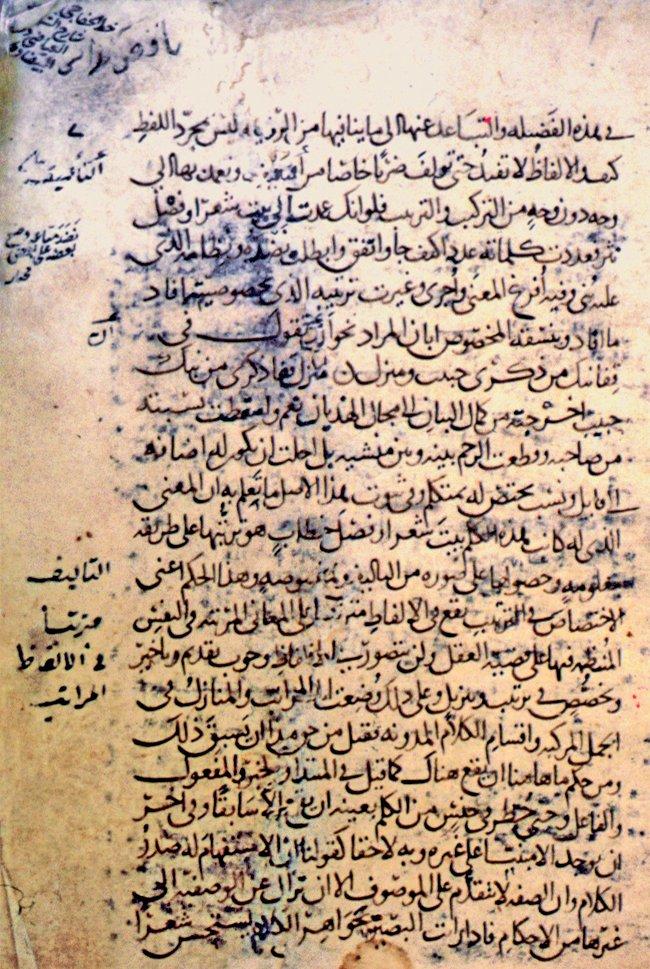 في هذه الفضيله والتباعد عنها الى ما ينافيها من الرذيله ليس مجرد اللفظ
كيف والالفاظ لا تفيد حتى تولف ضربا خاصا من ويعمد بها الى
وجه دون وجه من التركيب والترتيب فلو انك عمدت الى بيت شعر او فصل
نثر فعددت كلماته عدا كيف جا واتفق وابطلت نضده ونظامه الذي
عليه بني وفيه افرغ المعنى واجرى وغيرت ترتيبه الذي بخصوصيته افاد
ما افاد وبنسقه المخصوص ابان المراد نحو ان تقول في
قفا نبك من ذكرى حبيب ومنزل منزل قفا ذكرى من نبك
حبيب اخرجته من كمال البيان الى مجال الهذيان نعم واسقطت نسبته
من صاحبه وقطعت الرحم بينه وبين منشيه بل احلت ان يكون له اضافه
الى قايل ونسب يختص له بمتكلم وفي ثبوت هذا الاصل ما تعلم به ان المعنى
الذي له كانت هذه الكلم بيت شعر او فصل خطاب هو ترتيبها على طريقه
معلومه وحصولها على صوره من التاليف مخصوصه وهذا الحكم اعني
الاختصاص في الترتيب يقع في الالفاظ مرتبا على المعاني المرتبه في النفس
المنتظمه فيها على قضيه العقل ولن يتصور في الالفاظ وجوب تقديم وتاخير
وتخصص في ترتيب وتنزيل وعلى ذلك وضعت المراتب والمنازل في
الجمل المركبه واقسام الكلام المدونه فقيل من حق هذا ان يسبق ذلك
ومن حكم ما هاهنا ان يقع هناك كما قيل في المبتدا والخبر والمفعول
والفاعل حتى حظر في جنس من الكلم بعينه ان يقع الا سابقا وفي اخر
ان يوجد الا مبنيا على غيره وبه لاحقا كقولنا ان الاستفهام له صدر
الكلام وان الصفه لا تتقدم على الموصوف الا ان تزال عن الوصفيه الى
غيرها من الاحكام فاذا رايت البصير بجواهر الكلام يستحسن شعرا
التأليف
التاليف
مرتبا
في الالفاظ
المراتب